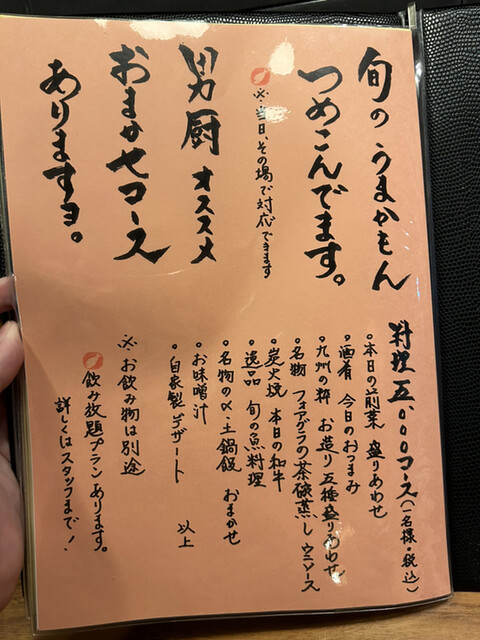 旬のうまかもん
つめこんでます。
※当日、その場で対応できます
男厨オススメ
おまかせコース
ありますヨ。
料理五、〇〇〇コース(一名様・税込)
○本日の前菜 盛りあわせ
○酒肴 今日のおつまみ
○九州の粋 お造り五種盛りあわせ
○名物 フォアグラの茶碗蒸し ウニソース
○炭火焼 本日の和牛
○逸品 旬の魚料理
○名物の〆・土鍋飯 おまかせ
○お味噌汁
○自家製デザート 以上
※お飲み物は別途
飲み放題プランあります。
詳しくはスタッフまで!